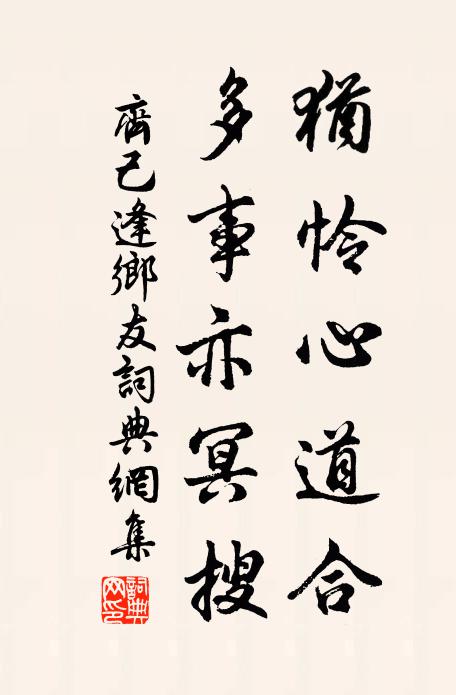 猶怜心道合
多事亦冥搜
齊己逢鄉友詞典網集
詞典网印